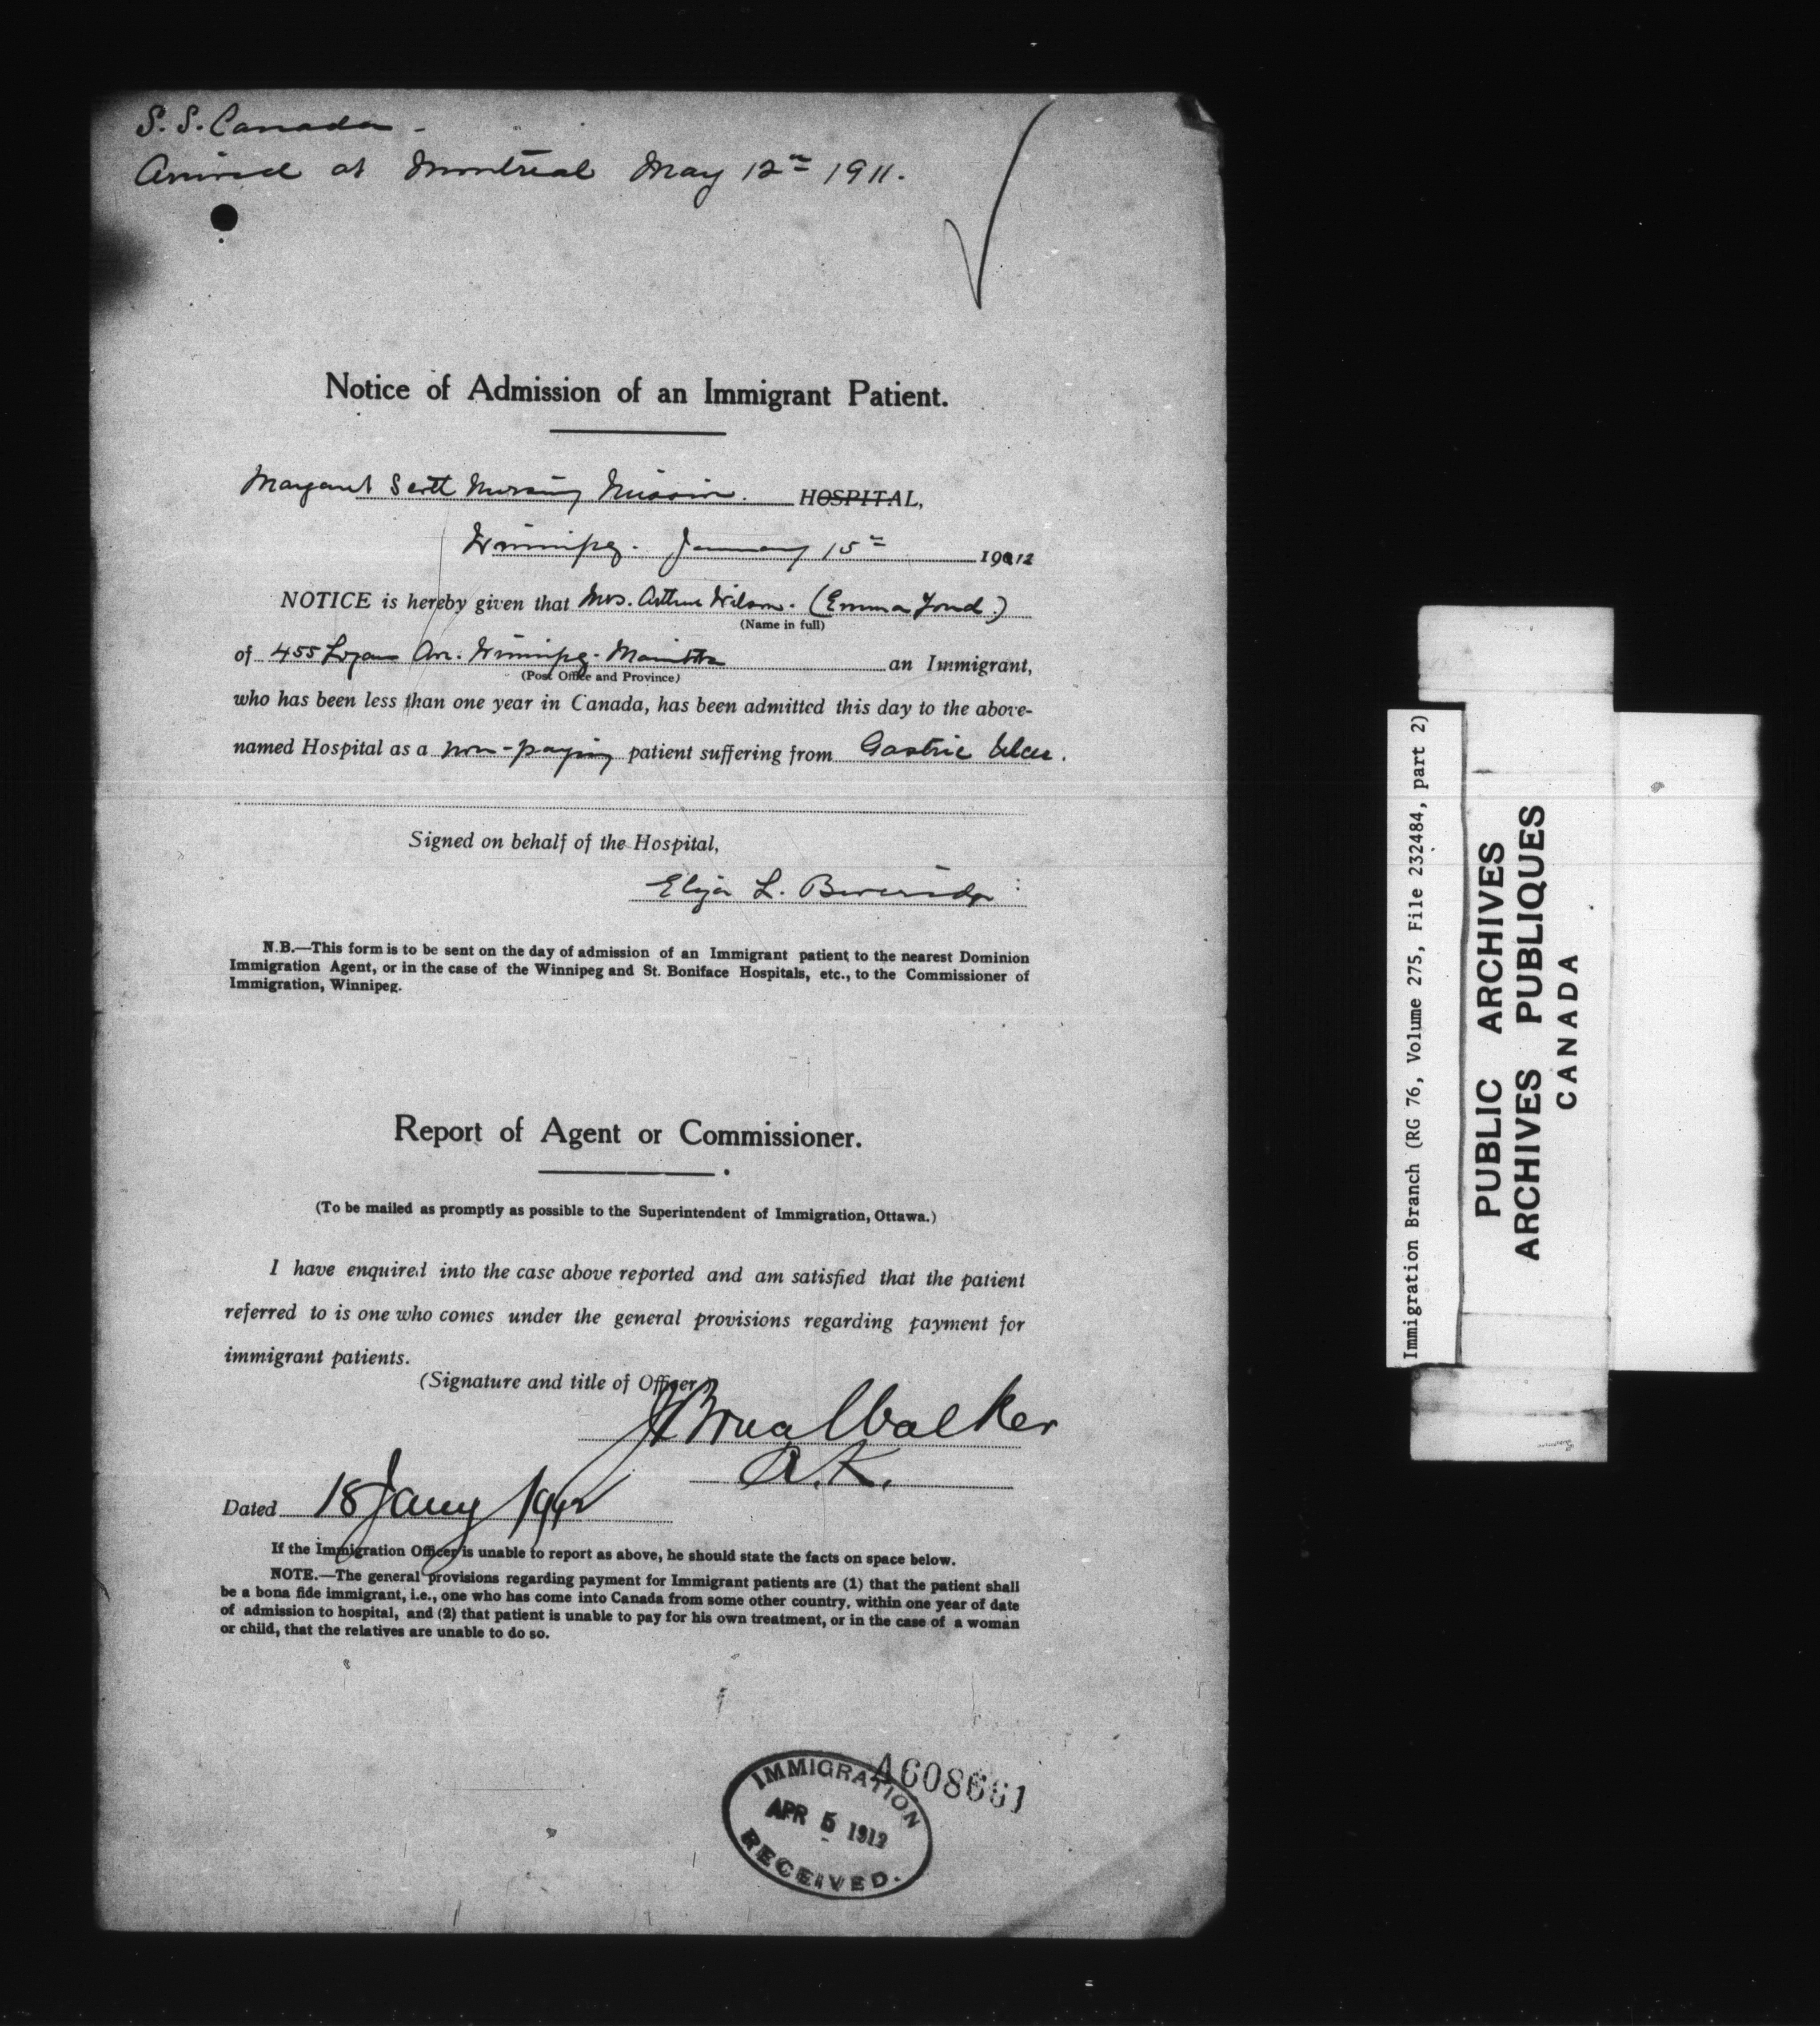 S. S. Canada -
Arrived at Montreal May 12th 1911.
Notice of Admission of an Immigrant Patient.
Margaret Scott Nursing Mission. HOSPITAL,
Winnipeg. January 15th 1912
NOTICE is hereby given that Mrs. Arthur Wilson. (Emma
(Name in full)
of 455 Logan Ave. Winnipeg. Manitoba an Immigrant,
(Post Office and Province)
who has been less than one year in Canada, has been admitted this day to the above-
named Hospital as a non-paying patient suffering from Gastric Ulcer.
Signed on behalf of the Hospital,
Eliza L. Beveridge
N.B.—This form is to be sent on the day of admission of an Immigrant patient to the nearest Dominion
Immigration Agent, or in the case of the Winnipeg and St. Boniface Hospitals, etc., to the Commissioner of
Immigration, Winnipeg.
Report of Agent or Commissioner.
(To be mailed as promptly as possible to the Superintendent of Immigration, Ottawa.)
I have enquired into the case above reported and am satisfied that the patient
referred to is one who comes under the general provisions regarding payment for
immigrant patients.
(Signature and title of Officer)
J Bruce Walker
A.K.
Dated 18 Jany 1912
If the Immigration Officer is unable to report as above, he should state the facts on space below.
NOTE.—The general provisions regarding payment for Immigrant patients are (1) that the patient shall
be a bona fide immigrant, i.e., one who has come into Canada from some other country, within one year of date
of admission to hospital, and (2) that patient is unable to pay for his own treatment, or in the case of a woman
or child, that the relatives are unable to do so.
A608661
IMMIGRATION
APR 5 1912
RECEIVED.
Immigration Branch (RG 76, Volume 275, File 232484, part 2)
PUBLIC ARCHIVES
ARCHIVES PUBLIQUES
CANADA